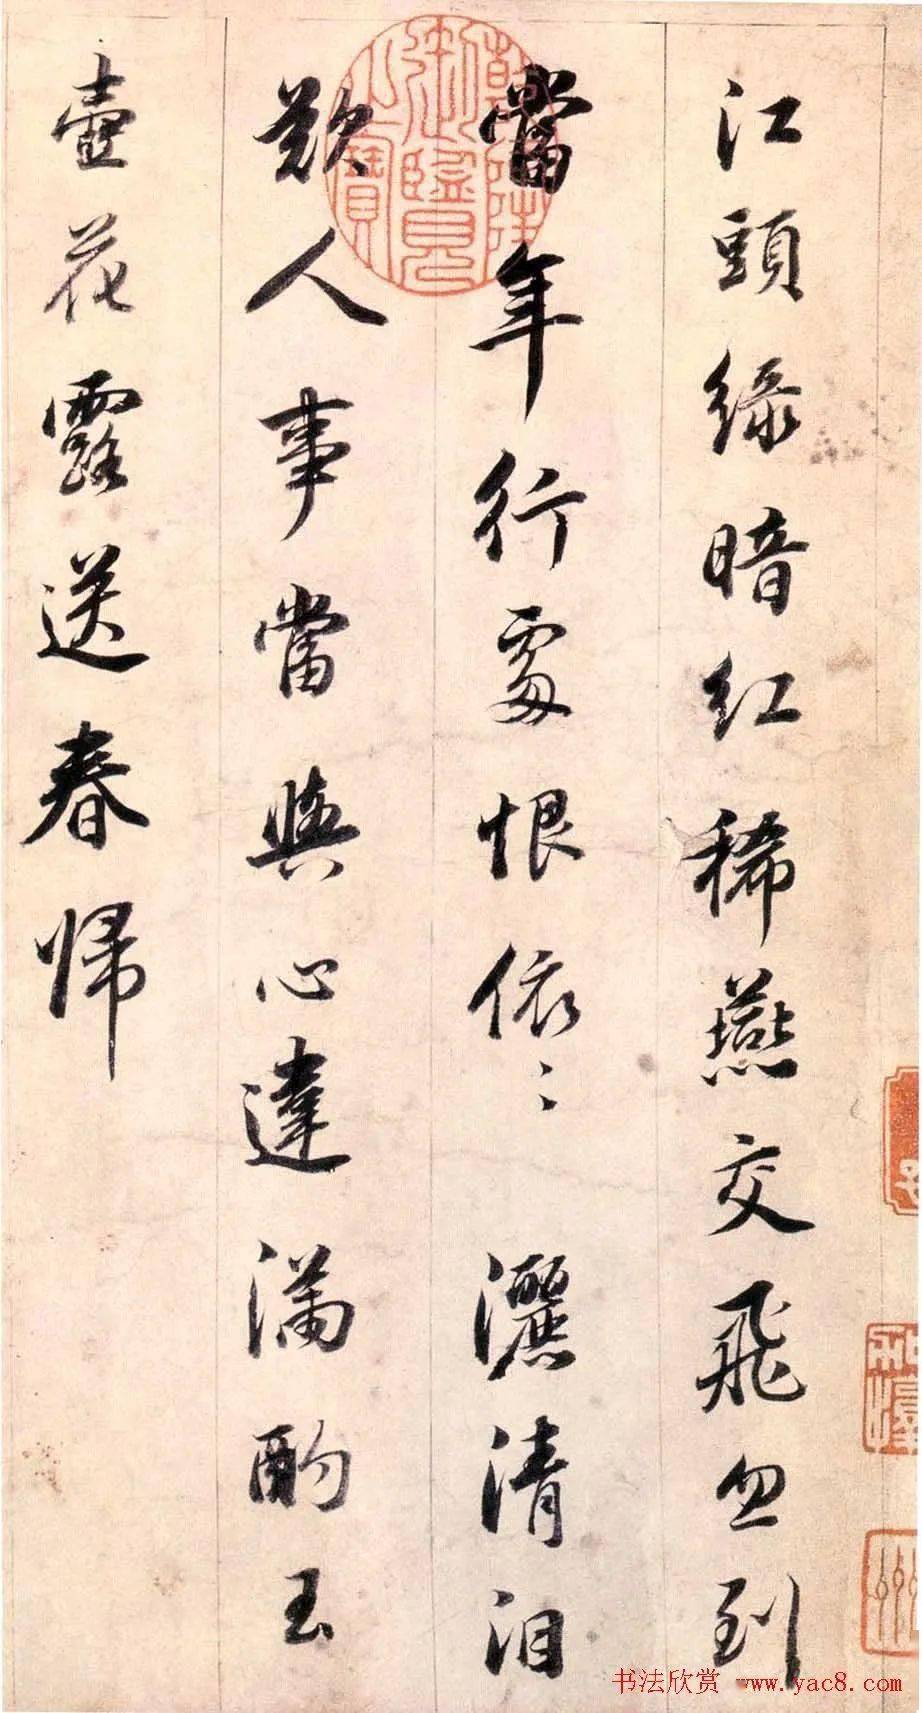 江頭綠暗紅稀燕交飛忽到
當年行處恨依〻灑清淚
歎人事當與心違滿酌玉
壺花露送春歸
乾隆御覽之寶
书法欣赏 www.yac8.com